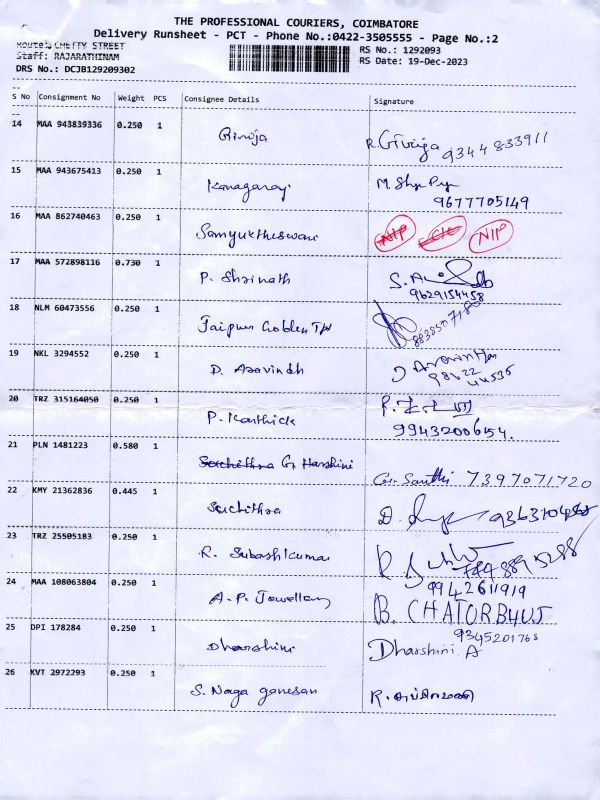 THE PROFESSIONAL COURIERS, COIMBATORE
Delivery Runsheet - PCT - Phone No.:0422-3505555 - Page No.:2
Route: CHETTY STREET
Staff: RAJARATHINAM
DRS No.: DCJB129209302
RS No.: 1292093
RS Date: 19-Dec-2023
S No Consignment No Weight PCS Consignee Details Signature
14 MAA 943839336 0.250 1 Girvija R. Girvija 9344833911
15 MAA 943675413 0.250 1 Kanagaraj
9677705149
16 MAA 862740463 0.250 1 Samyuktheswari NIP NIP
17 MAA 572898116 0.730 1 P. Shrinath
9629154458
18 NLM 60473556 0.250 1 Jaipur Golden TPT
19 NKL 3294552 0.250 1 D. Aravindh D Aravindh
98422
44535
20 TRZ 315164050 0.250 1 P. Karthick
9943200654.
21 PLN 1481223 0.580 1 Suchithra G. Harshini G. Santhi 7397071720
22 KMY 21362836 0.445 1 Suchithra
23 TRZ 25505183 0.250 1 R. Subashkumar
24 MAA 108063804 0.250 1 A.P. Jewellary 9942611919
B. CHATORBHUJ
25 DPI 178284 0.250 1 Dharshini 9345201768
Dharshini. A
26 KVT 2972293 0.250 1 S. Naga ganesan R. சுப்பிரமணி